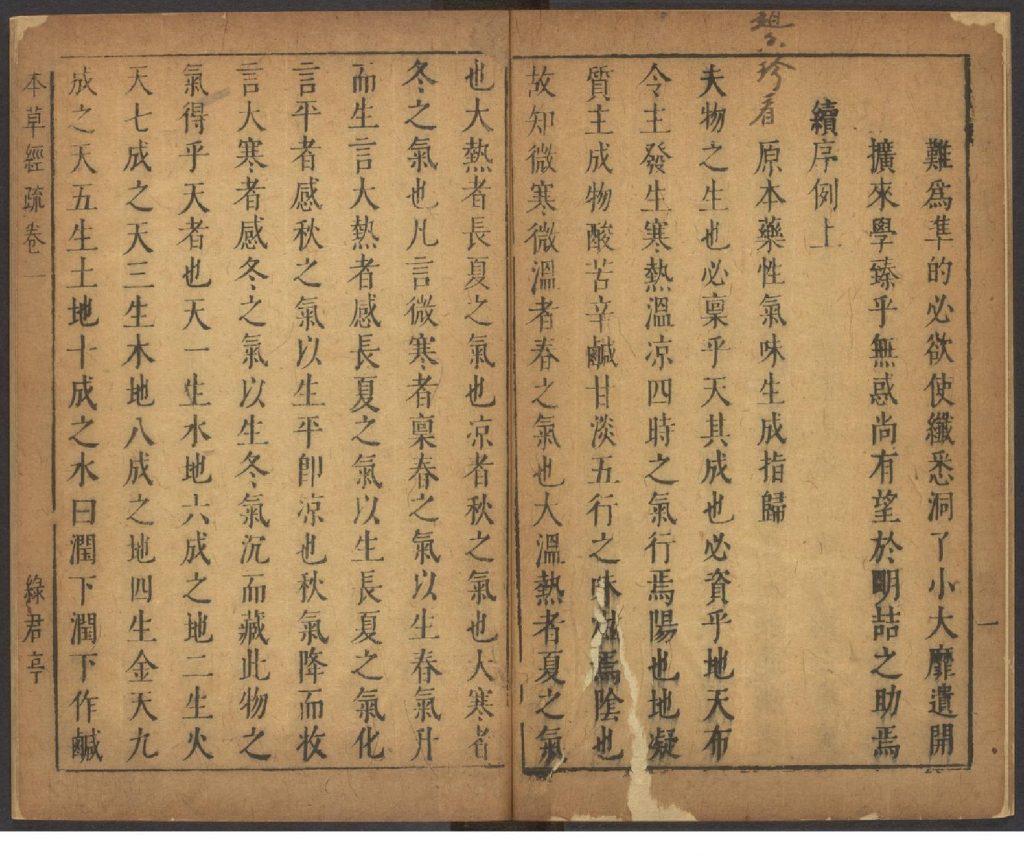 難爲準的必欲使纖悉洞了小大靡遺開
擴來學臻乎無惑尚有望於明喆之助焉
續序例上
原本藥性氣味生成指歸
珍看
夫物之生也必稟乎天其成也必資乎地天布
令主發生寒熱溫凉四時之氣行焉陽也地凝
質主成物酸苦辛鹹甘淡五行之味滋焉陰也
故知微寒微溫者春之氣也大溫熱者夏之氣
一
也大熱者長夏之氣也凉者秋之氣也大寒者
冬之氣也凡言微寒者稟春之氣以生春氣升
而生言大熱者感長夏之氣以生長夏之氣化
言平者感秋之氣以生平卽凉也秋氣降而收
言大寒者感冬之氣以生冬氣沉而藏此物之
氣得乎天者也天一生水地六成之地二生火
天七成之天三生木地八成之地四生金天九
成之天五生土地十成之水曰潤下潤下作鹹
本草經疏卷一
綠君亭